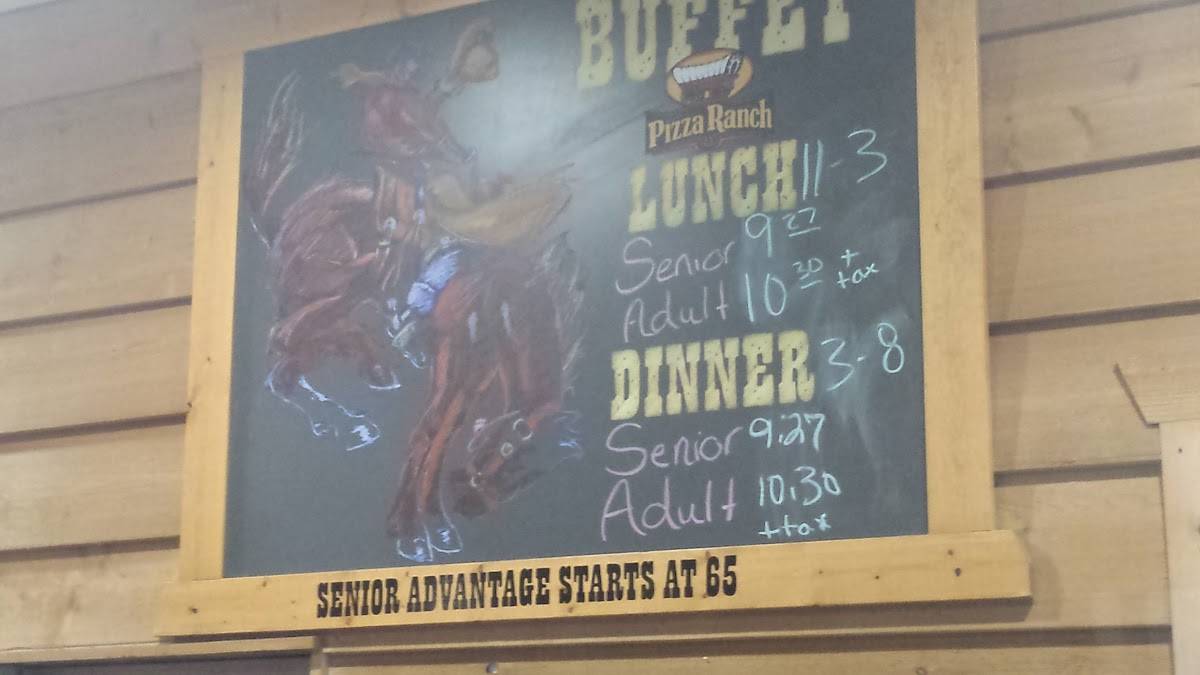 BUFFET
Pizza Ranch
LUNCH 11-3
Senior 9 27
Adult 10 30 + tax
DINNER 3-8
Senior 9.27
Adult 10.30
+tax
SENIOR ADVANTAGE STARTS AT 65